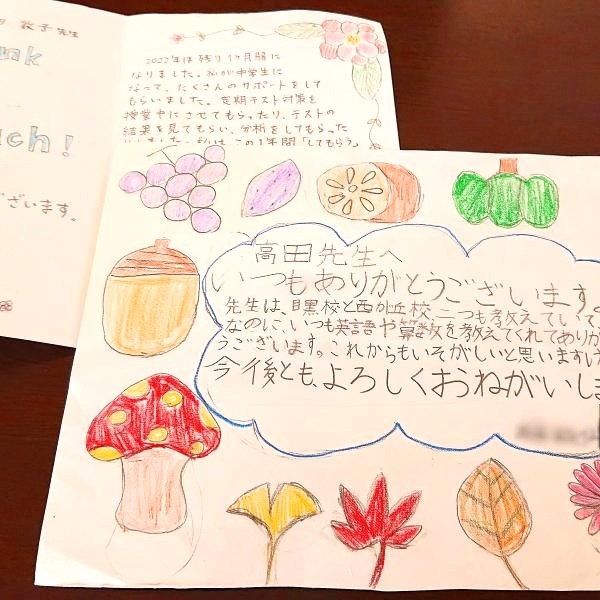 敦子先生
nk
ch!
ございます。
2022年は残り1ヶ月程に
なりました。私が中学生に
なって、たくさんのサポートをして
もらいました。定期テスト対策を
授業中にさせてもらったり、テストの
結果を見てもらい、分析をしてもらった
この1年間「してもらう
高田先生へ
いつもありがとうございます。
先生は、目黒校と西が丘校、二つも教えていて、
なのに、いつも英語や算数を教えてくれてありが
うございます。これからもいそがしいと思いますが
今後とも、よろしくおねがいしま